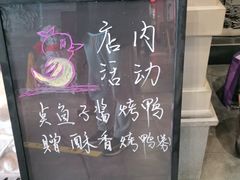 店内
活动
点鱼子酱烤鸭
赠酥香烤鸭卷